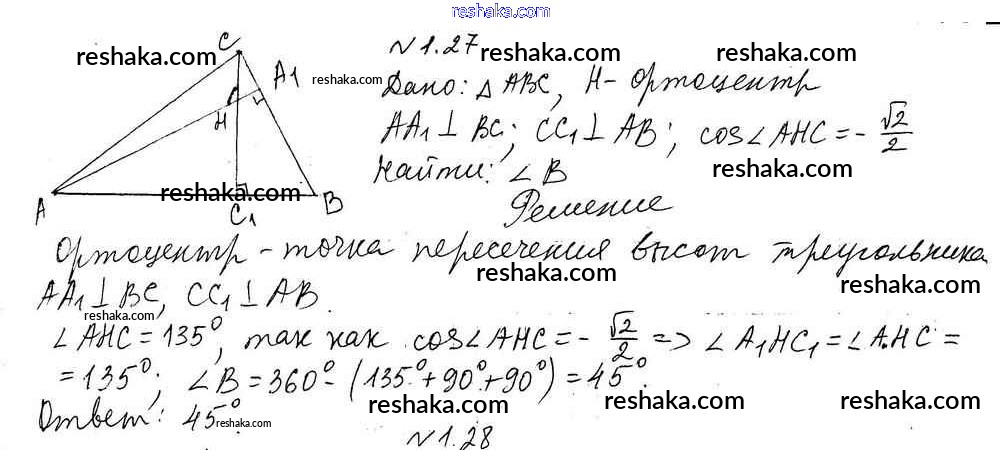 reshaka.com
C
№1.27
reshaka.com reshaka.com reshaka.com
A1
reshaka.com
Дано: △ABC, H-ортоцентр
H
AA₁⊥BC; CC₁⊥AB; cos∠AHC=-√2/2
Найти: ∠B
reshaka.com reshaka.com
A
C1
B
Решение
Ортоцентр - точка пересечения высот треугольника
reshaka.com reshaka.com
AA₁⊥BC, CC₁⊥AB.
reshaka.com
∠AHC=135°, так как cos∠AHC=-√2/2 => ∠A₁HC₁=∠AHC=
=135°; ∠B=360°-(135°+90°+90°)=45°.
reshaka.com reshaka.com reshaka.com
Ответ: 45°.
reshaka.com
№1.28